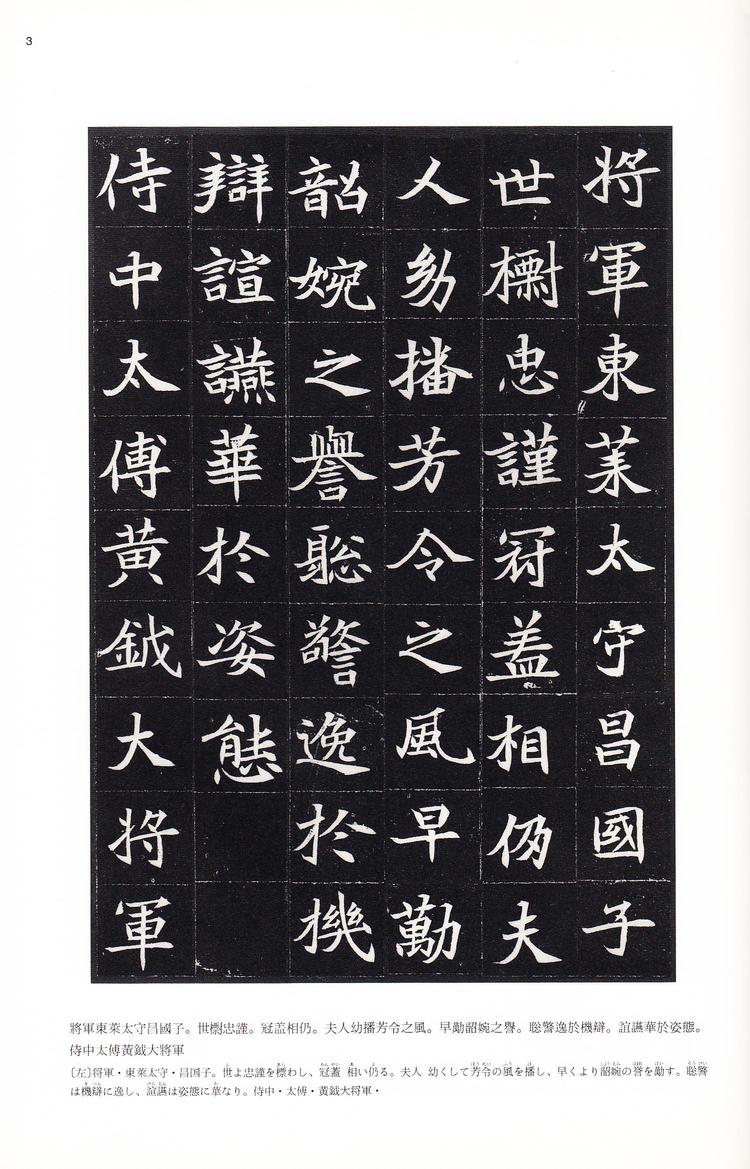 3
将軍東萊太守昌國子
世櫥忠謹冠盖相仍夫
人幼播芳令之風早勱
韶婉之譽聡警逸於機
辯諠讌華於姿態
侍中太傅黄鉞大将軍
將軍東萊太守昌國子。世櫥忠謹。冠盖相仍。夫人幼播芳令之風。早勱韶婉之譽。聡警逸於機辯。諠讌華於姿態。
侍中太傅黃鉞大將軍
〔左〕将軍・東萊太守・昌国子。世よ忠謹を標わし、冠蓋 相い仍る。夫人 幼くして芳令の風を播し、早くより韶婉の誉を勱す。聡警
は機辯に逸し、諠讌は姿態に華なり。侍中・太傅・黄鉞大将軍・